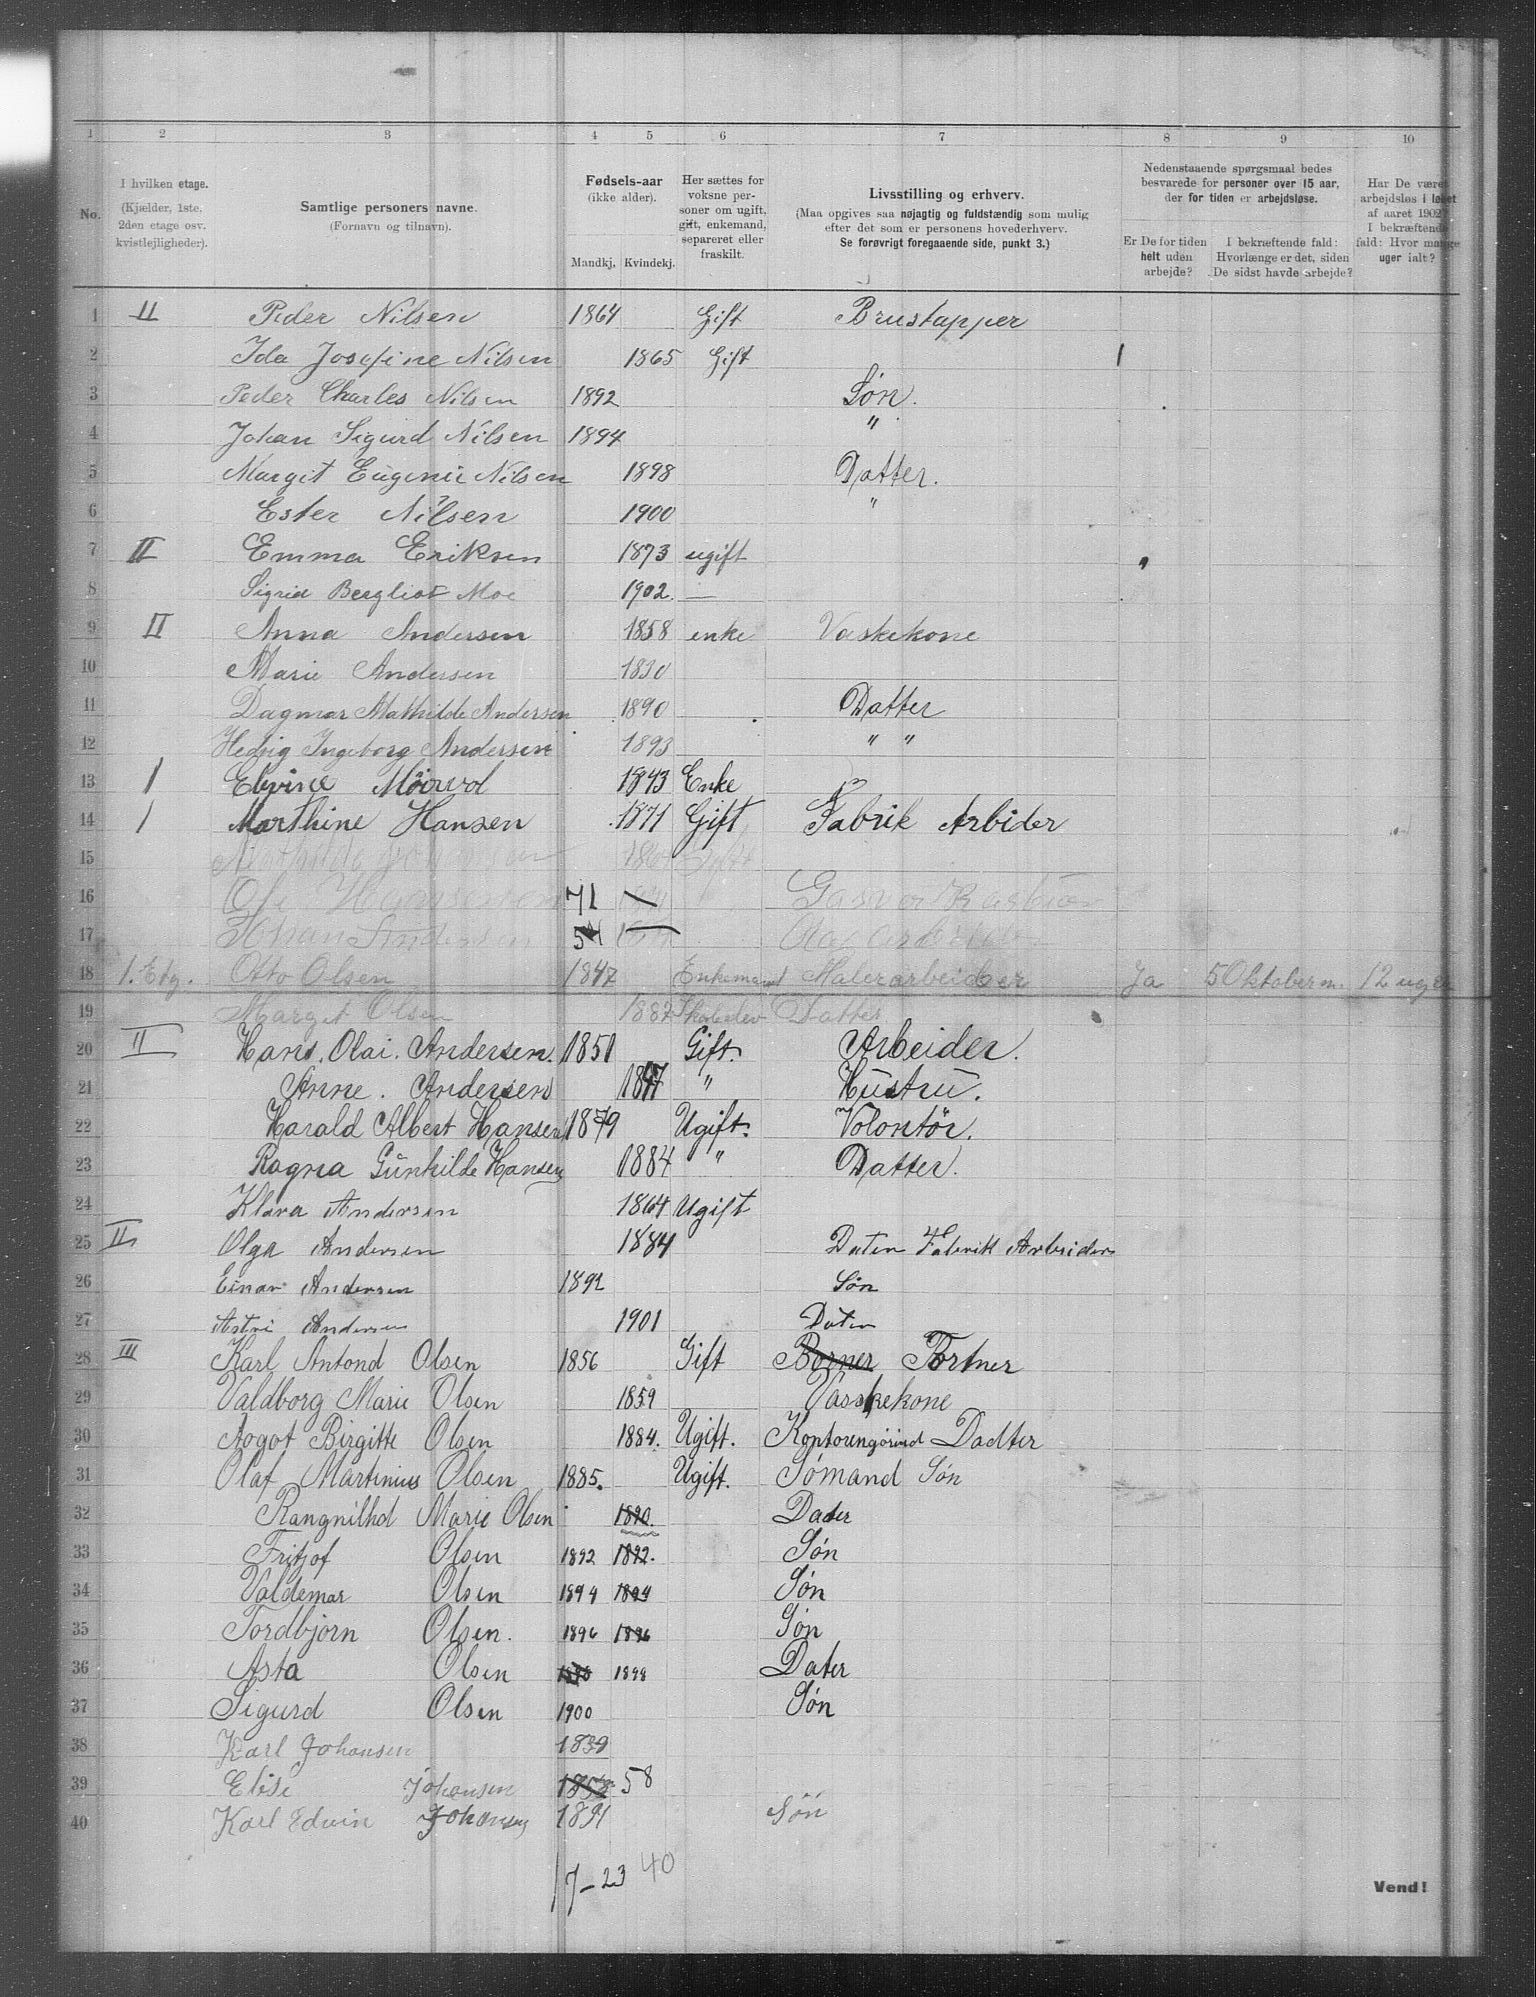 1 2 3 4 5 6 7 8 9 10
No.
I hvilken etage.
(Kjælder, 1ste. 2den etage osv. kvistlejligheder).
Samtlige personers navne.
(Fornavn og tilnavn).
Fødsels-aar
(ikke alder).
Mandkj. Kvindekj.
Her sættes for voksne personer om ugift, gift, enkemand, separeret eller fraskilt.
Livsstilling og erhverv.
(Maa opgives saa nøjagtig og fuldstændig som mulig efter det som er personens hovederhverv.
Se forøvrigt foregaaende side, punkt 3.)
Nedenstaaende spørgsmaal bedes besvarede for personer over 15 aar, der for tiden er arbejdsløse.
Er De for tiden helt uden arbejde?
I bekræftende fald: Hvorlænge er det, siden De sidst havde arbejde?
Har De været arbejdsløs i løbet af aaret 1902? I bekræftende fald: Hvor mange uger ialt?
1 II Peder Nilsen 1864 Gift Brustapper
2 Ida Josefine Nilsen 1865 Gift
3 Peder Charles Nilsen 1892 Søn.
4 Johan Sigurd Nilsen 1894 "
5 Margit Eugenie Nilsen 1898 Datter.
6 Ester Nilsen 1900 "
7 II Emma Eriksen 1873 ugift
8 Sigrid Bergliot Moe 1902. —
9 II Anna Andersen 1858 enke Vaskekone
10 Marie Andersen 1830
11 Dagmar Mathilde Andersen 1890 Datter
12 Hedvig Ingeborg Andersen 1893 " "
13 1 1843 Enke
14 1 Marthine Hansen 1871 Gift Fabrik Arbider
15
16 Ole 71
17
18 1. Etg. Otto Olsen 1847 Enkemand Malerarbeider Ja 5 Oktober m. 12 uger
19 Margit Olsen 1887 Datter
20 II Hans. Olai. Andersen. 1851 Gift. Arbeider.
21 Anne. Andersen 1847 " Hustru.
22 Harald Albert Hansen 1879 Ugift. Volontør.
23 Ragna Gunhilde Hansen 1884 " Datter.
24 Klara Andersen 1864 Ugift
25 II Olga Andersen 1884 Daten Fabrikk Arbeider
26 Einar Andersen 1892 Søn
27 Astri Andersen 1901 Daten
28 III Karl Antond Olsen 1856 Gift Borner Portner
29 Valdborg Marie Olsen 1859 Vasskekone
30 Aogot Birgitte Olsen 1884. Ugift. Dadter
31 Olaf Martinius Olsen 1885. Ugift. Sømand Søn
32 Rangnilhd Marie Olsen 1890. Dater
33 Fritjof Olsen 1892 1892. Søn
34 Valdemar Olsen 1894 1894 Søn
35 Tordbjørn Olsen. 1896 1896 Søn
36 Asta Olsen 1898 1898 Dater
37 Sigurd Olsen 1900 Søn
38 Karl Johansen 1839
39 Elise Johansen 1858 58
40 Karl Edvin Johansen 1891 Søn
17-23 40
Vend!